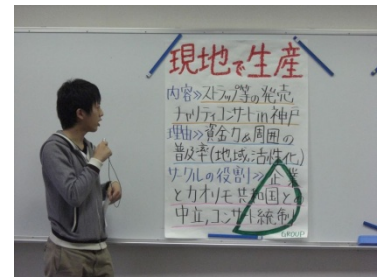 現地で生産
内容≫ストラップ等の発売
チャリティコンサートin神戸
理由≫資金力&周囲の
普及率(地域活性化)
サークルの役割≫企業
とカオリモ共和国と
中立,コンサート統制
GROUP